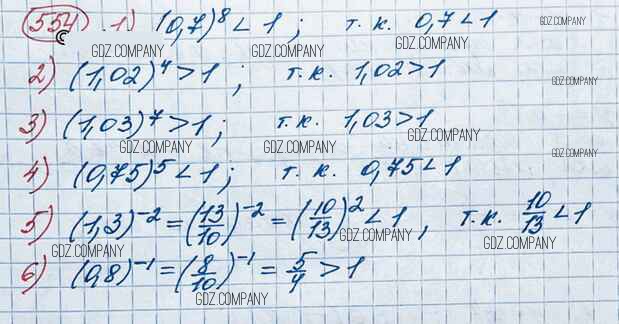 554 1) (0,7)^8 < 1; т.к. 0,7 < 1
GDZ.COMPANY GDZ.COMPANY GDZ.COMPANY GDZ.COMPANY
2) (1,02)^4 > 1; т.к. 1,02 > 1
GDZ.COMPANY GDZ.COMPANY GDZ.COMPANY
3) (1,03)^7 > 1; т.к. 1,03 > 1
GDZ.COMPANY GDZ.COMPANY GDZ.COMPANY GDZ.COMPANY
4) (0,75)^5 < 1; т.к. 0,75 < 1
5) (1,3)^-2 = (13/10)^-2 = (10/13)^2 < 1, т.к. 10/13 < 1
GDZ.COMPANY GDZ.COMPANY GDZ.COMPANY
6) (0,8)^-1 = (8/10)^-1 = 5/4 > 1
GDZ.COMPANY